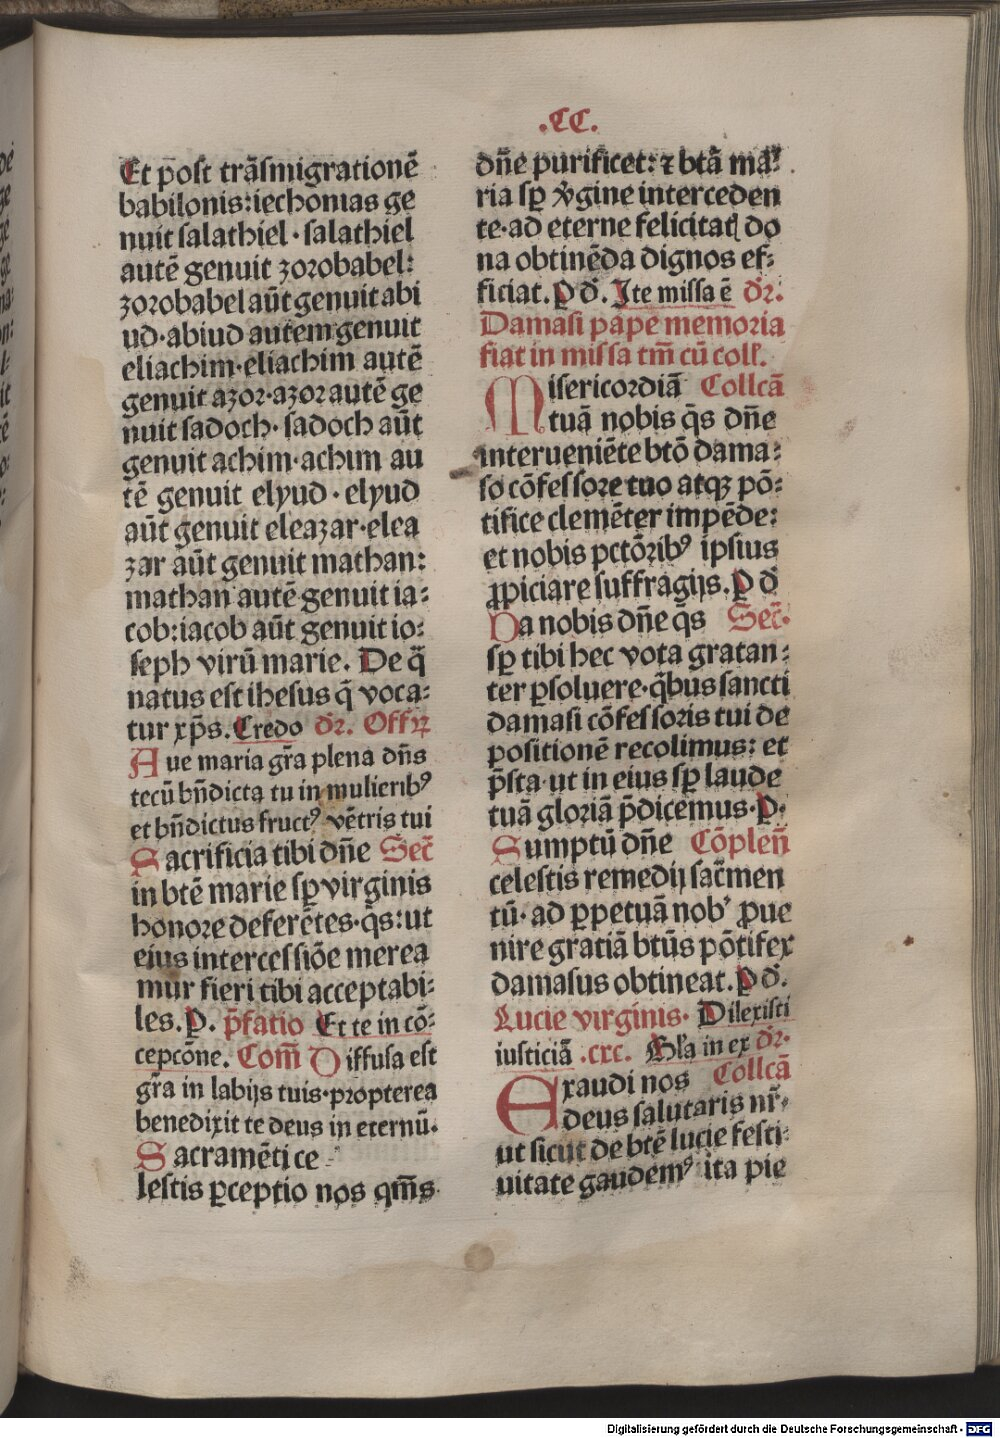 .CC.
Et post trāsmigrationē
babilonis:iechonias ge
nuit salathiel·salathiel
autē genuit zorobabel:
zorobabel aūt genuit abi
ud·abiud autem genuit
eliachim·eliachim autē
genuit azor·azor autē ge
nuit sadoch·sadoch aūt
genuit achim·achim au
tē genuit elyud·elyud
aūt genuit eleazar·elea
zar aūt genuit mathan:
mathan autē genuit ia⸗
cob:iacob aūt genuit io⸗
seph virū marie. De q̄
natus est ihesus q̄ voca⸗
tur xp̄s. Credo dr̄. Offꝝ
Aue maria gr̄a plena dn̄s
tecū bn̄dicta tu in mulieribꝰ
et bn̄dictus fructꝰ vētris tui
Sacrificia tibi dn̄e Secr̄
in btē marie sꝑ virginis
honore deferētes·q̄s:ut
eius intercessiōe merea
mur fieri tibi acceptabi⸗
les.P. p̄fatio Et te in cō⸗
cepcōne. Com̄ Diffusa est
gr̄a in labijs tuis·propterea
benedixit te deus in eternū.
Sacramēti ce
lestis ꝑceptio nos qm̄s
dn̄e purificet:⁊ btā ma⸗
ria sꝑ v̄gine interceden
te·ad eterne felicitatꝭ do
na obtinēda dignos ef⸗
ficiat.P d̄. Ite missa ē dr̄.
Damasi pape memoria
fiat in missa tm̄ cū coll̄.
Misericordiā Collcā
tuā nobis q̄s dn̄e
interueniēte btō dama⸗
so cōfessore tuo atqꝫ pō⸗
tifice clemēter impēde:
et nobis pctōribꝰ ipsius
ꝓpiciare suffragijs.P d̄
Da nobis dn̄e q̄s Secr̄.
sꝑ tibi hec vota gratan⸗
ter ꝑsoluere·q̄bus sancti
damasi cōfessoris tui de
positionē recolimus: et
p̄sta·ut in eius sꝑ laude
tuā gloriā p̄dicemus.P.
Sumptū dn̄e Cōplen̄
celestis remedij sacr̄men
tū·ad ꝑpetuā nobꝭ ꝓue
nire gratiā btūs pōtifex
damasus obtineat.P d̄.
Lucie virginis. Dilexisti
iusticiā .cxc. Gl̄a in ex dr̄.
Exaudi nos Collcā
deus salutaris nr̄⸗
ut sicut de btē lucie festi⸗
uitate gaudemꝰ ita pie
Digitalisierung gefördert durch die Deutsche Forschungsgemeinschaft - DFG